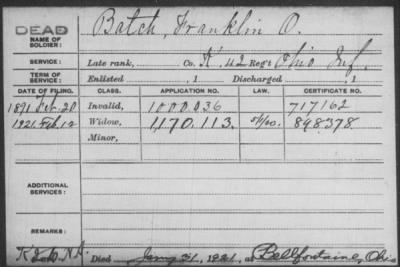 DEAD
NAME OF SOLDIER: Batch, Franklin O.
SERVICE: Late rank, Co. K, 42 Reg't Ohio Inf.
TERM OF SERVICE: Enlisted , 1 Discharged , 1
DATE OF FILING. CLASS. APPLICATION NO. LAW. CERTIFICATE NO.
1891 20 Invalid, 1000036 717162
1921 Feb. 12 Widow, 1170.113. 898378
Minor,
ADDITIONAL SERVICES:
REMARKS:
Died Jany 31, 1921, at Bellfontaine, Ohio